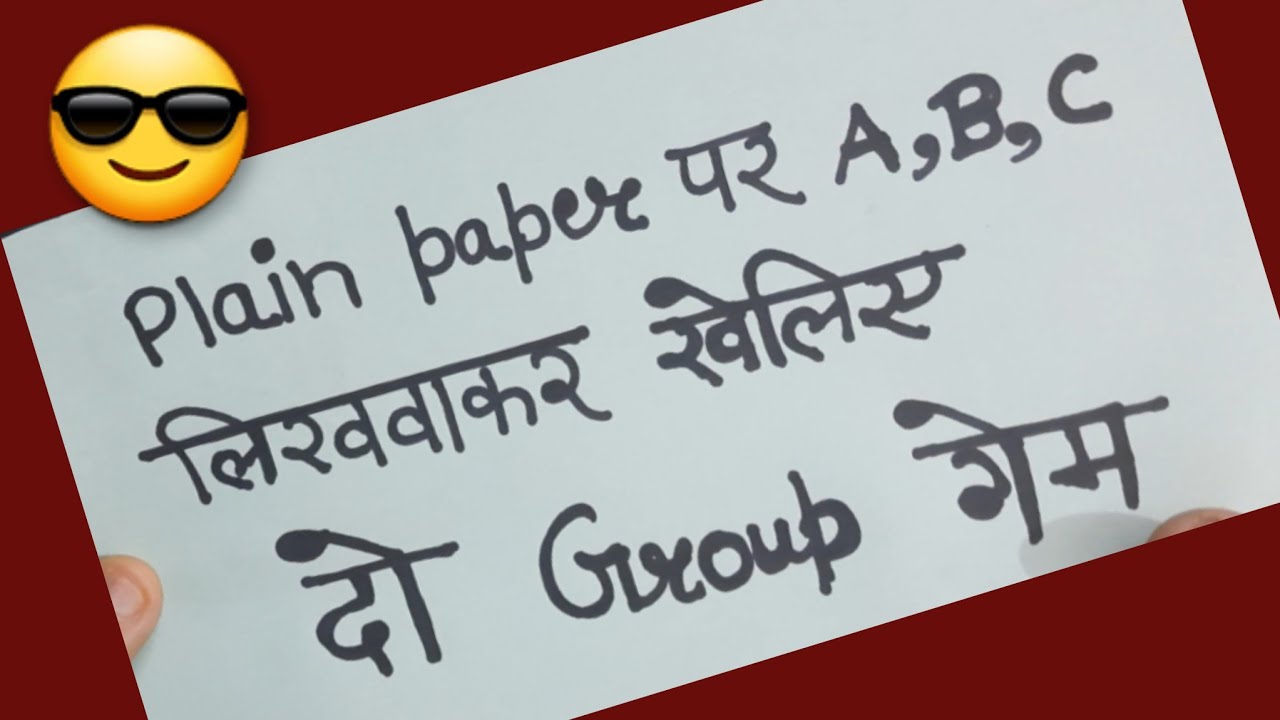 Plain paper पर A,B,C
लिखवाकर खेलिए
दो Group गेम